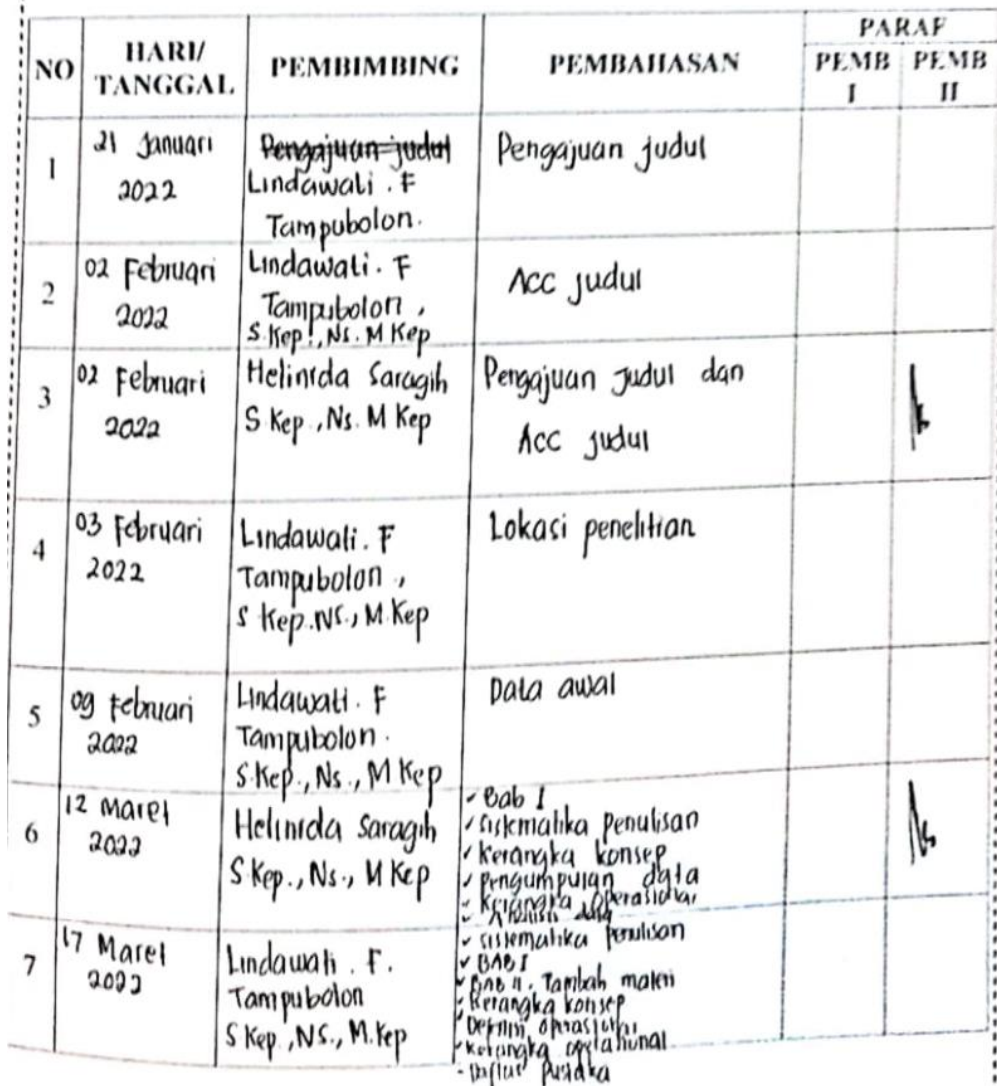 NO
HARI/
TANGGAL
PEMBIMBING
PEMBAHASAN
PARAF
PEMB
I
PEMB
II
1
21 Januari
2022
Pengajuan judul
Lindawati . F
Tampubolon.
Pengajuan judul
2
02 Februari
2022
Lindawati. F
Tampubolon,
S Kep., Ns. M Kep
Acc judul
3
02 Februari
2022
Helinida Saragih
S Kep., Ns. M Kep
Pengajuan Judul dan
Acc judul
4
03 Februari
2022
Lindawati. F
Tampubolon.,
S Kep. NS., M. Kep
Lokasi penelitian
5
09 Februari
2022
Lindawati. F
Tampubolon.
S. Kep., Ns., M Kep
Data awal
6
12 Maret
2022
Helinida Saragih
S Kep., Ns., M Kep
✓ Bab I
✓ Sistematika penulisan
✓ Kerangka konsep
✓ Pengumpulan data
✓ Kerangka Operasional
✓ Analisis data
7
17 Maret
2022
Lindawati . F.
Tampubolon
S Kep., NS., M. Kep
✓ Sistematika penulisan
✓ BAB I
✓ BAB II. Tambah materi
✓ Kerangka konsep
✓ Definisi operasional
✓ Kerangka operasional
- Daftar Pustaka